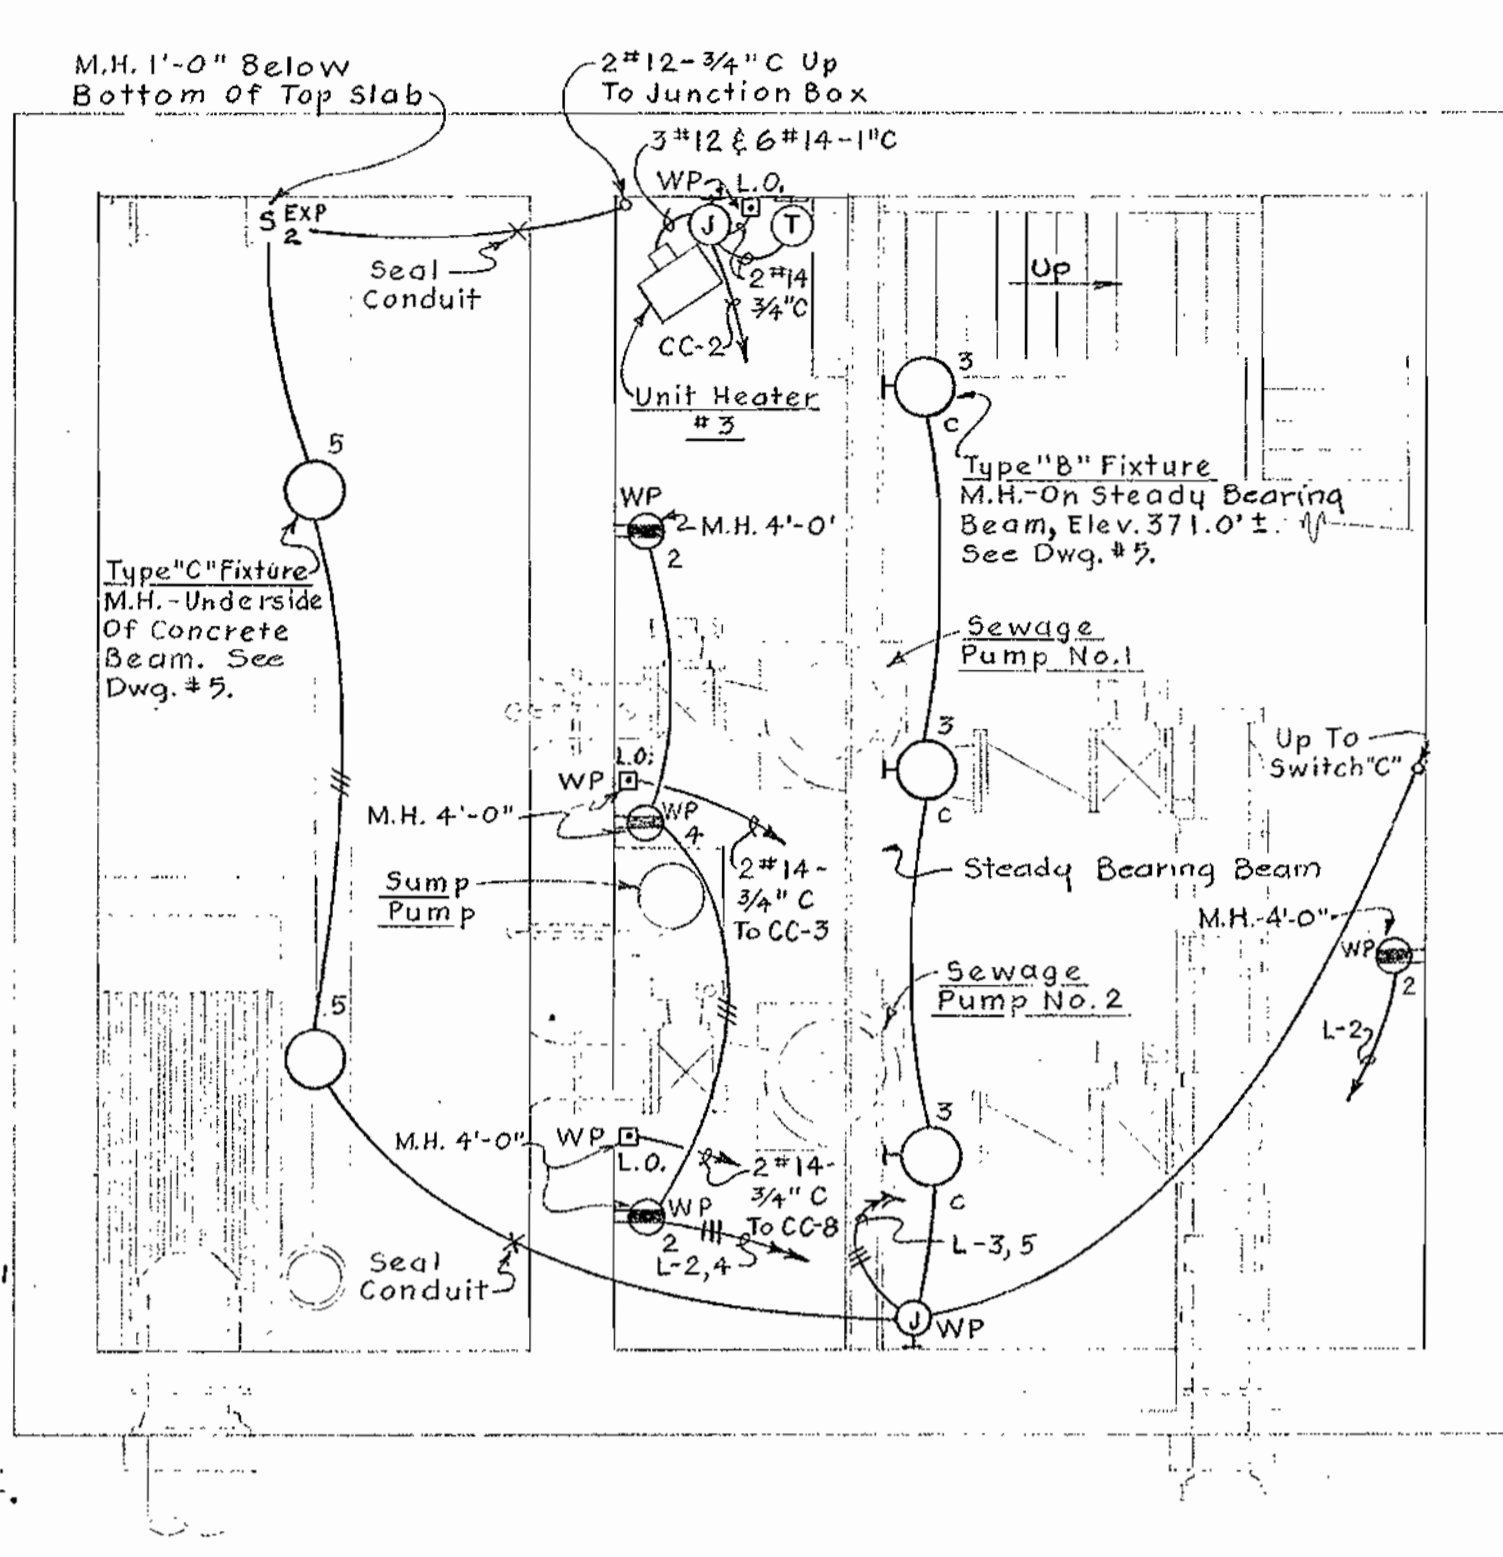 M.H. 1'-0" Below
Bottom Of Top Slab
2#12-3/4" C Up
To Junction Box
3#12 & 6#14-1"C
WP L.O.
S EXP
2
J
T
Seal
Conduit
2#14
3/4"C
CC-2
Unit Heater
#3
Up
3
C
Type "B" Fixture
M.H.-On Steady Bearing
Beam, Elev. 371.0' ±.
See Dwg. #5.
5
Type "C" Fixture
M.H.-Underside
Of Concrete
Beam. See
Dwg. #5.
WP
M.H. 4'-0'
2
Sewage
Pump No.1
3
C
Up To
Switch "C"
L.O.
WP
M.H. 4'-0"
WP
4
2#14-
3/4" C
To CC-3
Sump
Pump
Steady Bearing Beam
M.H.-4'-0"
WP
2
L-2
Sewage
Pump No. 2
5
3
C
M.H. 4'-0"
WP
L.O.
2#14-
3/4" C
To CC-8
WP
2
L-2,4
L-3,5
Seal
Conduit
J
WP